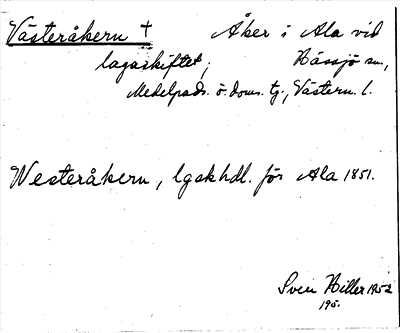 Västeråkern † Åker i Ala vid
lagaskiftet; Hässjö sn,
Medelpads ö. doms. tg., Västern. l.
Westeråkern, lgskhdl. för Ala 1851.
Sven Hiller 1952
195.